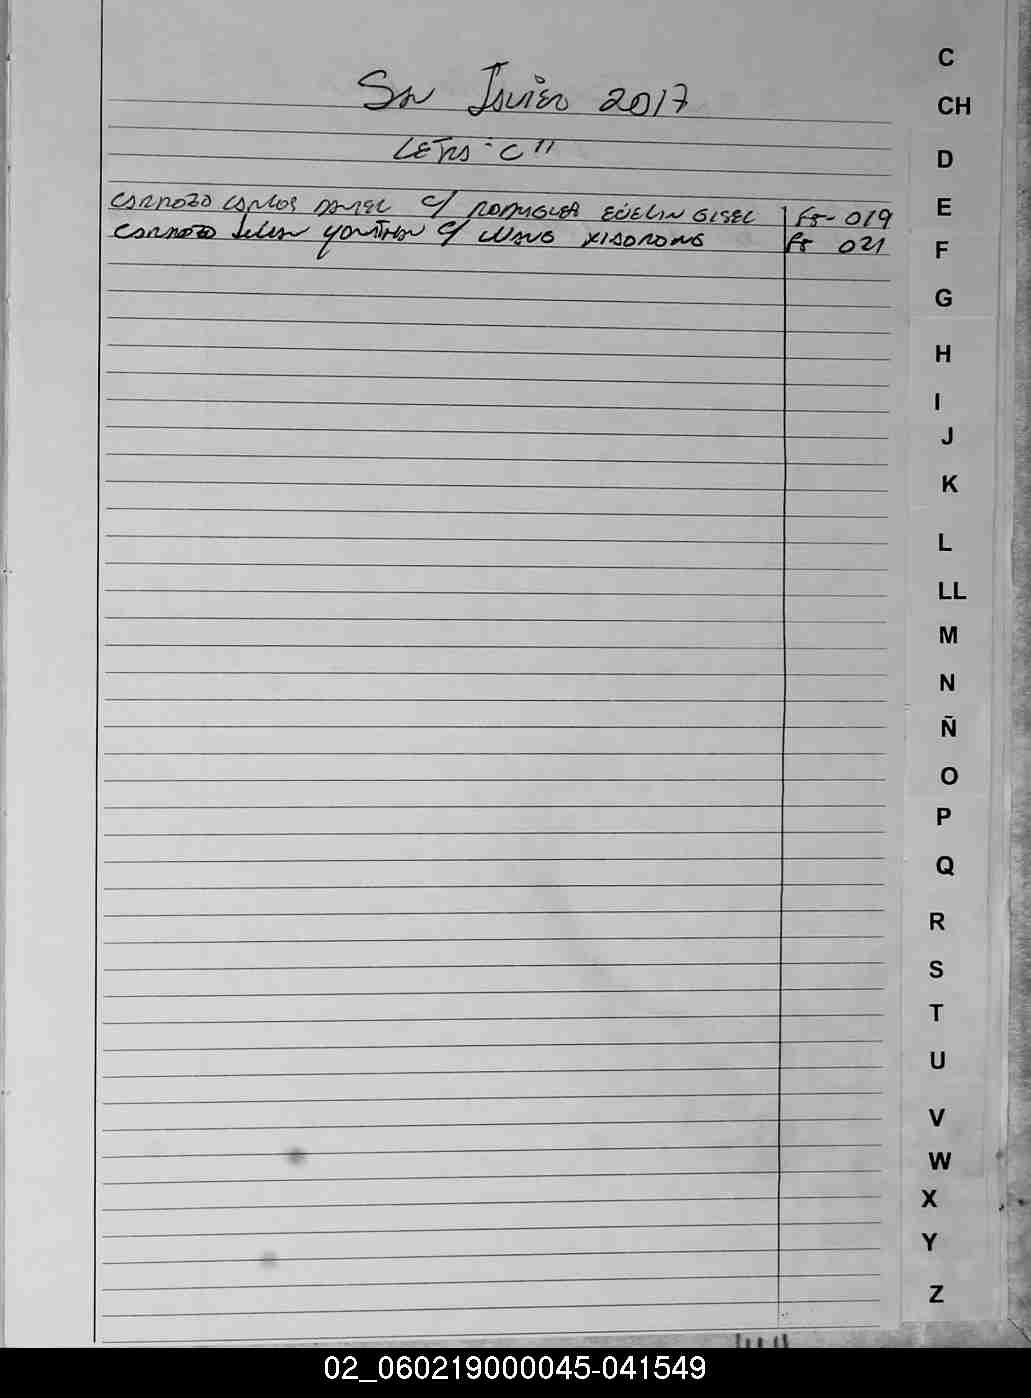 San Javier 2017
LETRA "C"
CARDOZO CARLOS DANIEL C/ RODRIGUEZ EVELIN GISEL FS- 019
CARDOZO YONATHAN C/ WANG XIAORONG FS 021
C
CH
D
E
F
G
H
I
J
K
L
LL
M
N
Ñ
O
P
Q
R
S
T
U
V
W
X
Y
Z
02_060219000045-041549